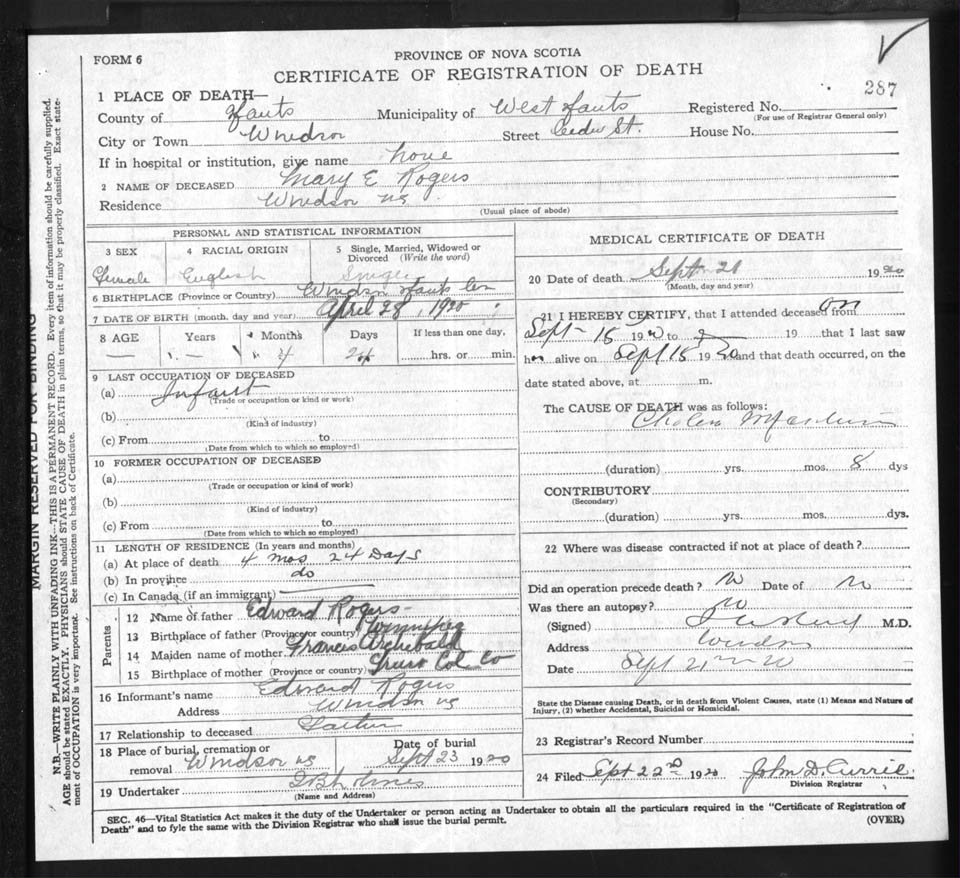 FORM 6
PROVINCE OF NOVA SCOTIA
CERTIFICATE OF REGISTRATION OF DEATH
287
1 PLACE OF DEATH—
County of Hants Municipality of West Hants Registered No.
(For use of Registrar General only)
City or Town Windsor Street Cedar St. House No.
If in hospital or institution, give name home
2 NAME OF DECEASED Mary E Rogers
Residence Windsor NS
(Usual place of abode)
PERSONAL AND STATISTICAL INFORMATION
3 SEX 4 RACIAL ORIGIN 5 Single, Married, Widowed or Divorced (Write the word)
Female English Single
6 BIRTHPLACE (Province or Country) Windsor Hants Co
7 DATE OF BIRTH (month, day and year) April 28, 1920
8 AGE Years Months Days If less than one day,
4 hrs. or min.
9 LAST OCCUPATION OF DECEASED
(a) Infant
(Trade or occupation or kind or work)
(b)
(Kind of industry)
(c) From to
(Date from which to which so employed)
10 FORMER OCCUPATION OF DECEASED
(a)
(Trade or occupation or kind of work)
(b)
(Kind of industry)
(c) From to
(Date from which to which so employed)
11 LENGTH OF RESIDENCE (In years and months)
(a) At place of death 4 mos 24 Days
(b) In province do
(c) In Canada (if an immigrant)
Parents
12 Name of father Edward Rogers
13 Birthplace of father (Province or country) Winnipeg
14 Maiden name of mother Francis Archibald
15 Birthplace of mother (Province or country) Truro Col Co
16 Informant's name Edward Rogers
Address Windsor NS
17 Relationship to deceased Father
18 Place of burial, cremation or removal Windsor NS Date of burial Sept 23 1920
19 Undertaker
(Name and Address)
MEDICAL CERTIFICATE OF DEATH
20 Date of death Sept 21 1920
(Month, day and year)
21 I HEREBY CERTIFY, that I attended deceased from on
Sept 15 1920 to 19 that I last saw
h alive on Sept 15 1920 and that death occurred, on the
date stated above, at m.
The CAUSE OF DEATH was as follows:
Cholera Infantum
(duration) yrs. mos. 8 dys
CONTRIBUTORY
(Secondary)
(duration) yrs. mos. dys.
22 Where was disease contracted if not at place of death?
Did an operation precede death? No Date of
Was there an autopsy? No
(Signed) M.D.
Address Windsor
Date Sept 21 20
State the Disease causing Death, or in death from Violent Causes, state (1) Means and Nature of
Injury, (2) whether Accidental, Suicidal or Homicidal.
23 Registrar's Record Number
24 Filed Sept 22nd 1920 John D. Currie
Division Registrar
SEC. 46—Vital Statistics Act makes it the duty of the Undertaker or person acting as Undertaker to obtain all the particulars required in the "Certificate of Registration of
Death" and to fyle the same with the Division Registrar who shall issue the burial permit. (OVER)
MARGIN RESERVED FOR BINDING
N.B.—WRITE PLAINLY WITH UNFADING INK—THIS IS A PERMANENT RECORD. Every item of information should be carefully supplied.
AGE should be stated EXACTLY. PHYSICIANS should STATE CAUSE OF DEATH in plain terms, so that it may be properly classified. Exact state-
ment of OCCUPATION is very important. See instructions on back of Certificate.